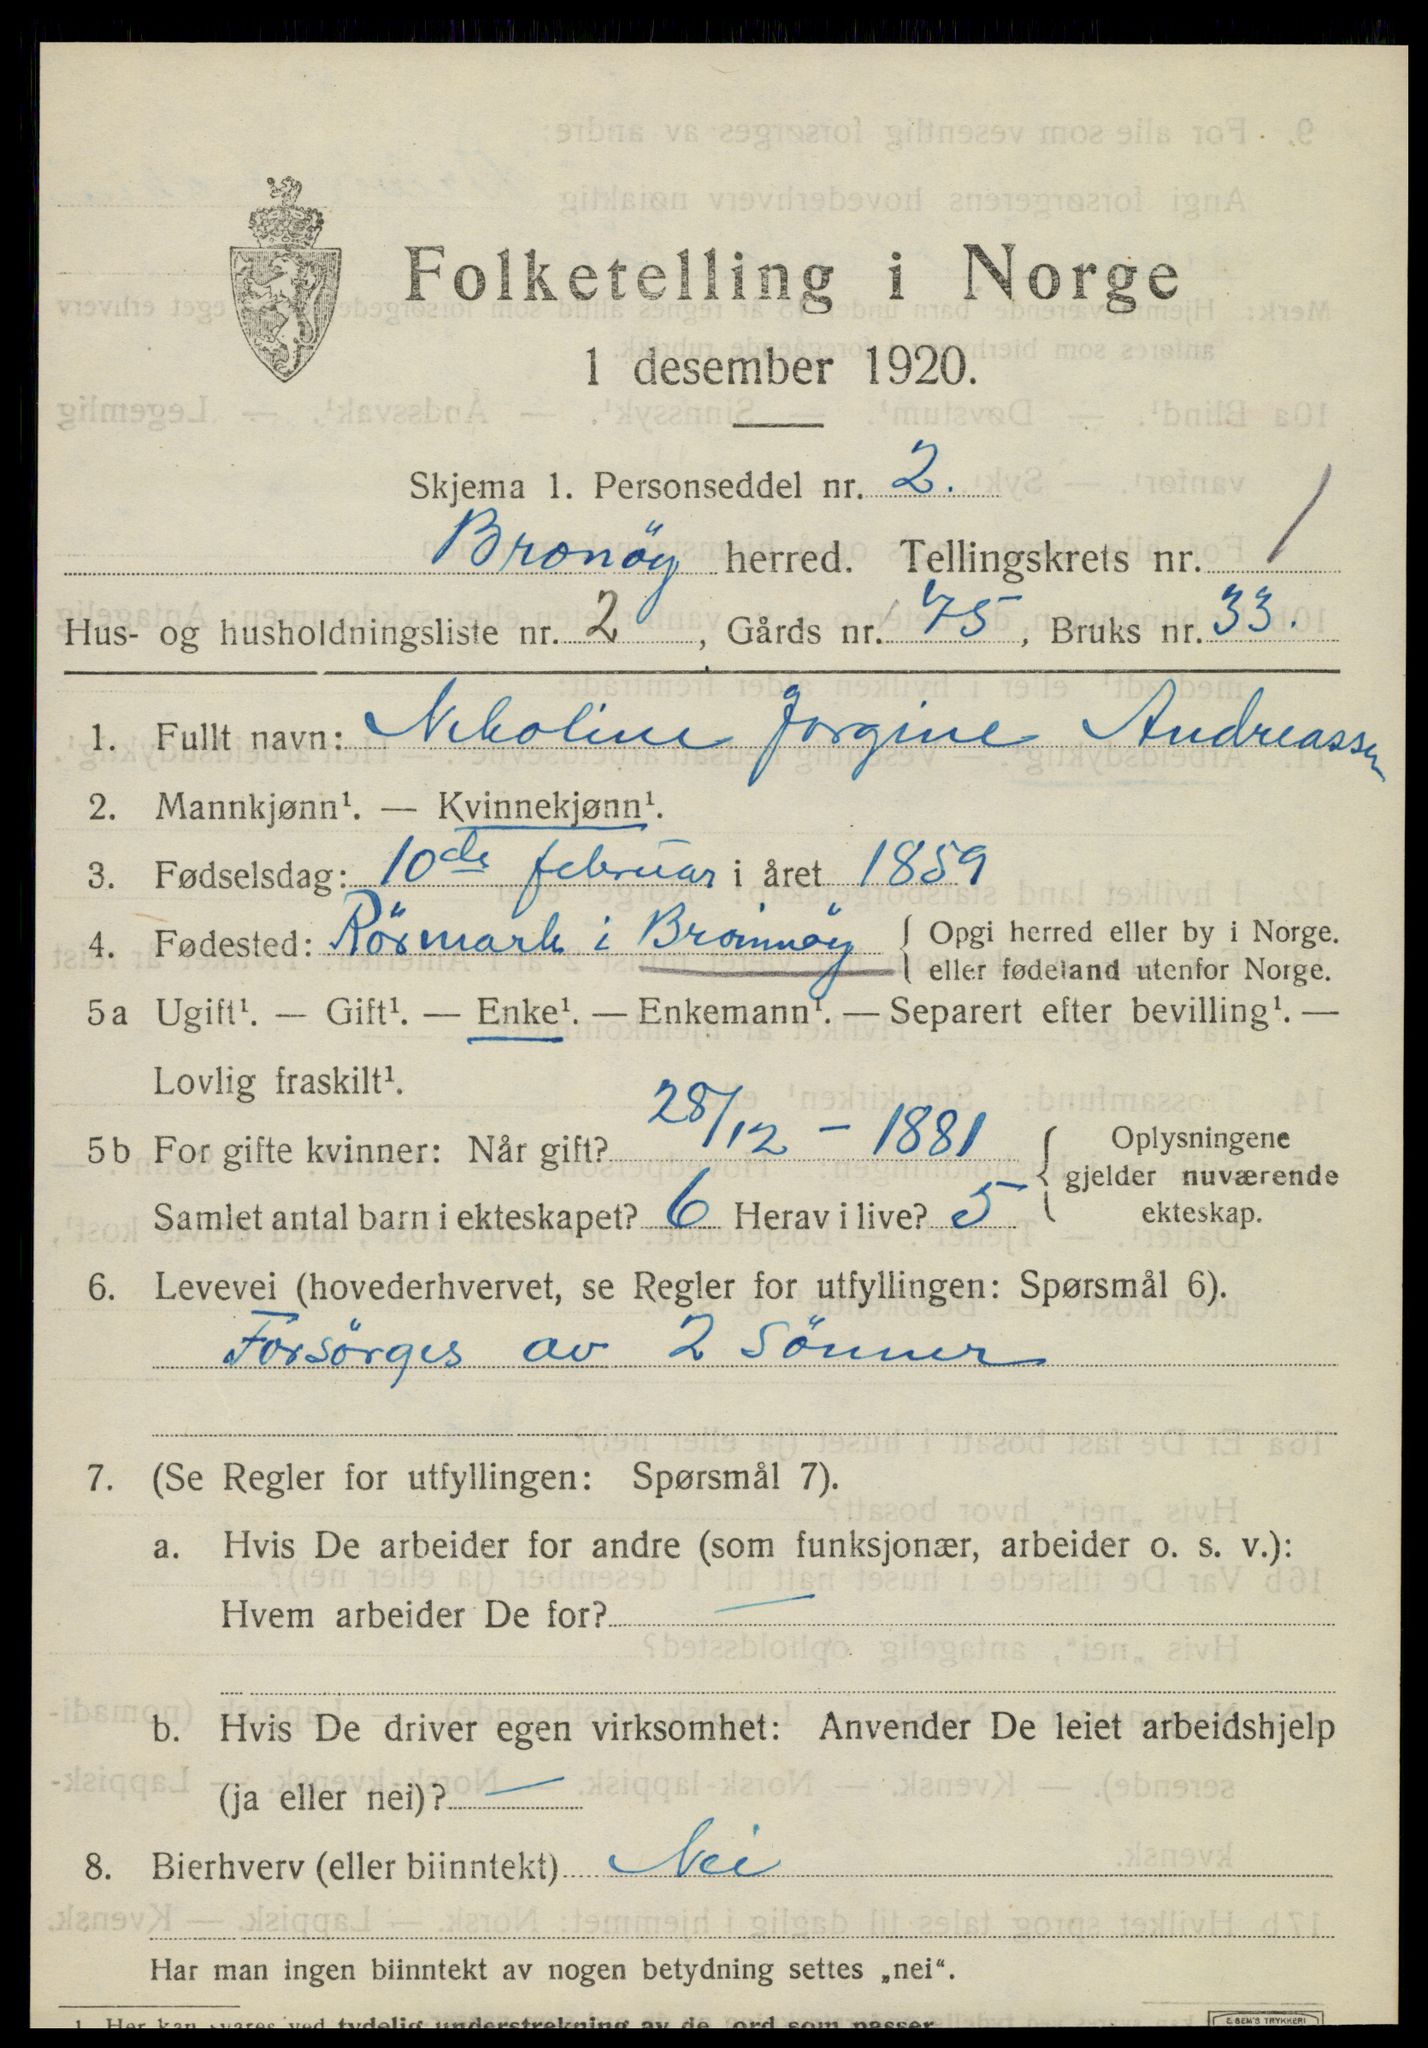 Folketelling i Norge
1 desember 1920.
Skjema 1. Personseddel nr. 2.
Bronöy herred. Tellingskrets nr. 1
Hus- og husholdningsliste nr. 2, Gårds nr. 75, Bruks nr. 33.
1. Fullt navn: Nikoline Jorgine Andreassen
2. Mannkjønn¹. — Kvinnekjønn¹.
3. Fødselsdag: 10de februar i året 1859
4. Fødested: Rörmark i Brönnöy { Opgi herred eller by i Norge.
eller fødeland utenfor Norge.
5a Ugift¹. — Gift¹. — Enke¹. — Enkemann¹. — Separert efter bevilling¹. —
Lovlig fraskilt¹.
5b For gifte kvinner: Når gift? 28/12 - 1881 { Oplysningene
gjelder nuværende
ekteskap.
Samlet antal barn i ekteskapet? 6 Herav i live? 5
6. Levevei (hovederhvervet, se Regler for utfyllingen: Spørsmål 6).
Forsörges av 2 Sönner
7. (Se Regler for utfyllingen: Spørsmål 7).
a. Hvis De arbeider for andre (som funksjonær, arbeider o. s. v.):
Hvem arbeider De for? —
b. Hvis De driver egen virksomhet: Anvender De leiet arbeidshjelp
(ja eller nei)? —
8. Bierhverv (eller biinntekt) Nei
Har man ingen biinntekt av nogen betydning settes „nei“.
1 Her kan svares ved tydelig understrekning av de ord som passer
E. SEM'S TRYKKERI